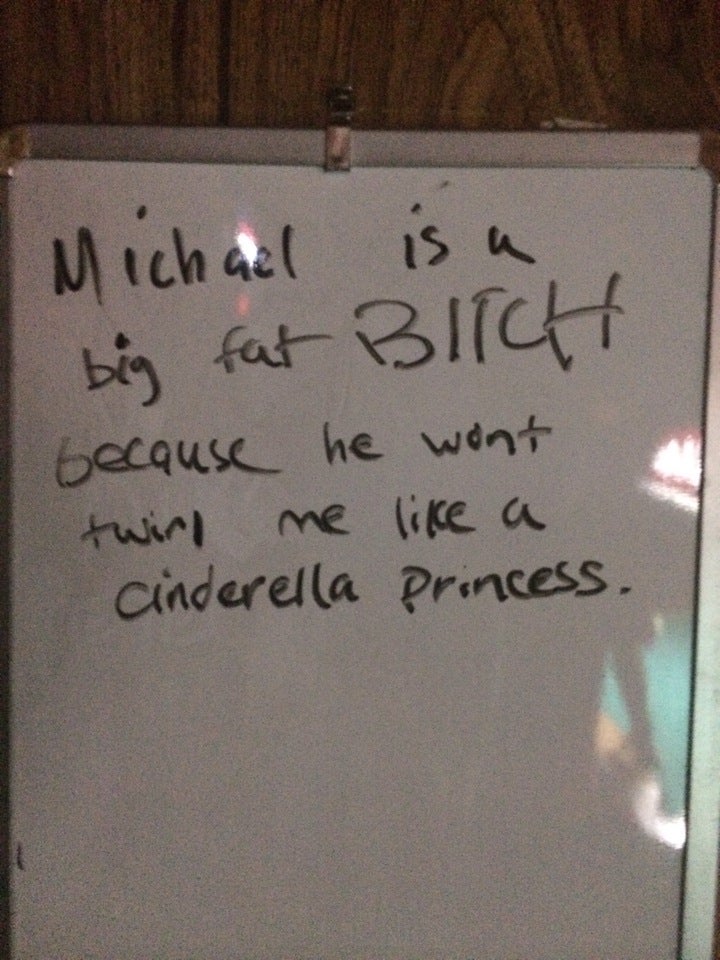 Michael is a
big fat BITCH
because he wont
twirl me like a
cinderella princess.